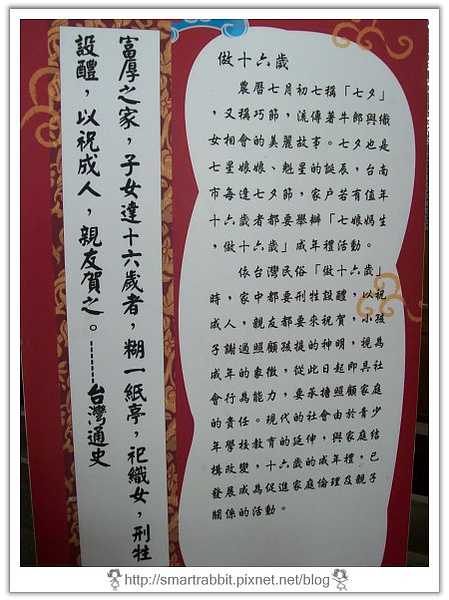 富厚之家，子女達十六歲者，糊一紙亭，祀織女，刑牲
設醴，以祝成人，親友賀之。┄┄台灣通史
做十六歲
農曆七月初七稱「七夕」
，又稱巧節，流傳著牛郎與織
女相會的美麗故事。七夕也是
七星娘娘、魁星的誕辰，台南
市每逢七夕節，家戶若有值年
十六歲者都要舉辦「七娘媽生
，做十六歲」成年禮活動。
依台灣民俗「做十六歲」
時，家中都要刑牲設醴，以祝
成人，親友都要來祝賀，小孩
子謝過照顧孩提的神明，視為
成年的象徵，從此日起即具社
會行為能力，要承擔照顧家庭
的責任。現代的社會由於青少
年學校教育的延伸，與家庭結
構改變，十六歲的成年禮，已
發展成為促進家庭倫理及親子
關係的活動。
http://smartrabbit.pixnet.net/blog